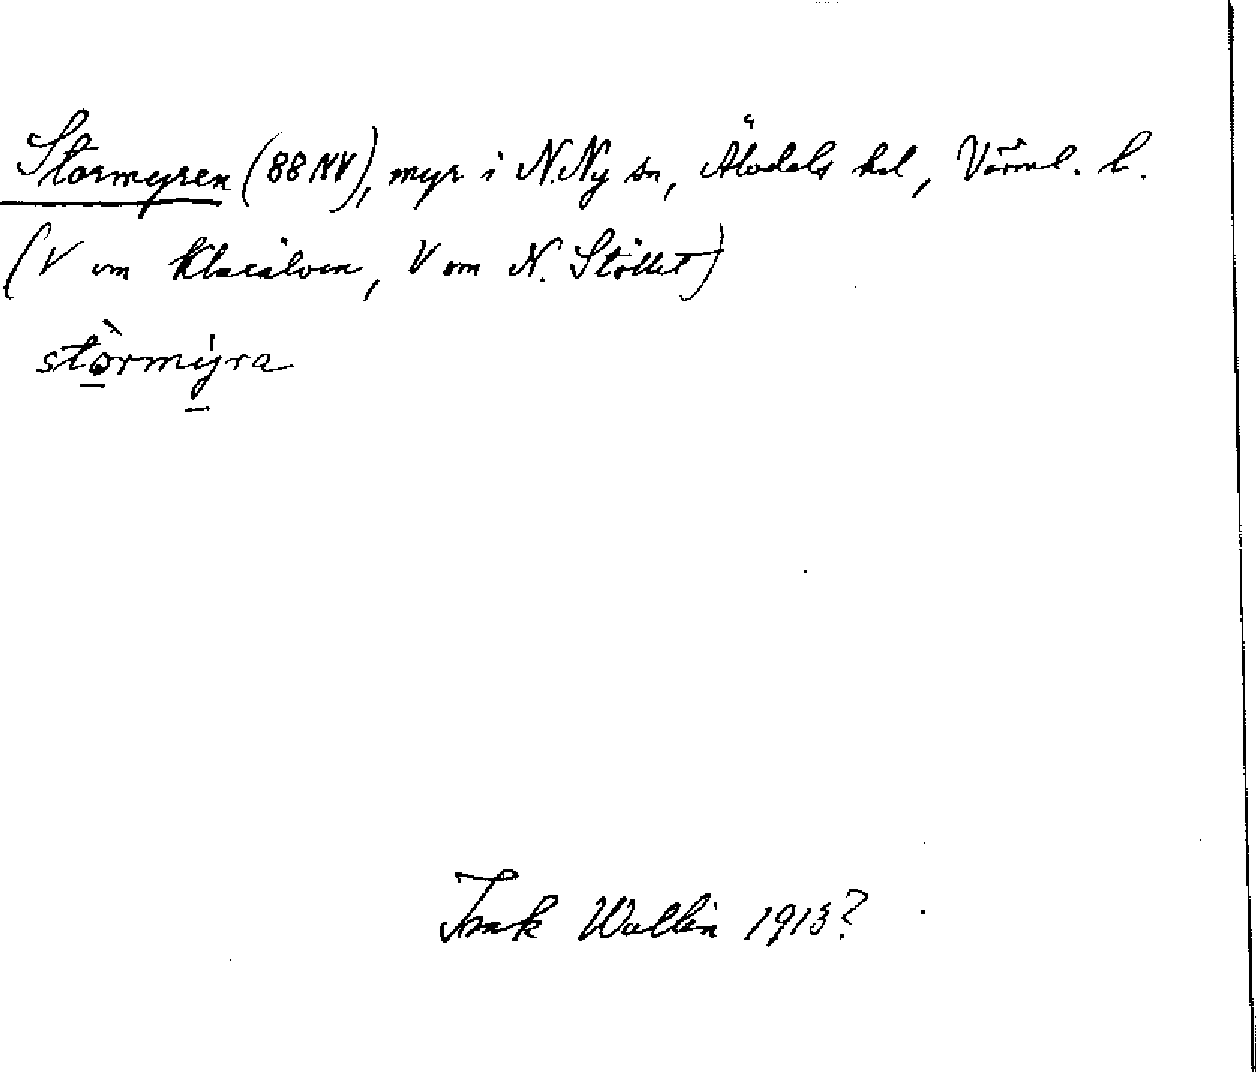 Stormyren (88 NV), myr i N. Ny sn, Älvdals hd, Värml. l.
(V om Klarälven, V om N. Stöllet)
stòrmýra
Isak Wallin 1913?